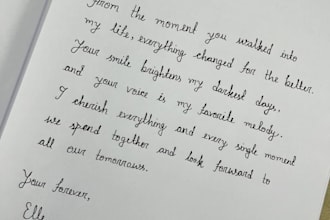 From the moment you walked into
my life, everything changed for the better.
Your smile brightens my darkest days,
and your voice is my favorite melody.
I cherish everything and every single moment
we spend together and look forward to
all our tomorrows.
Your forever,
Elle